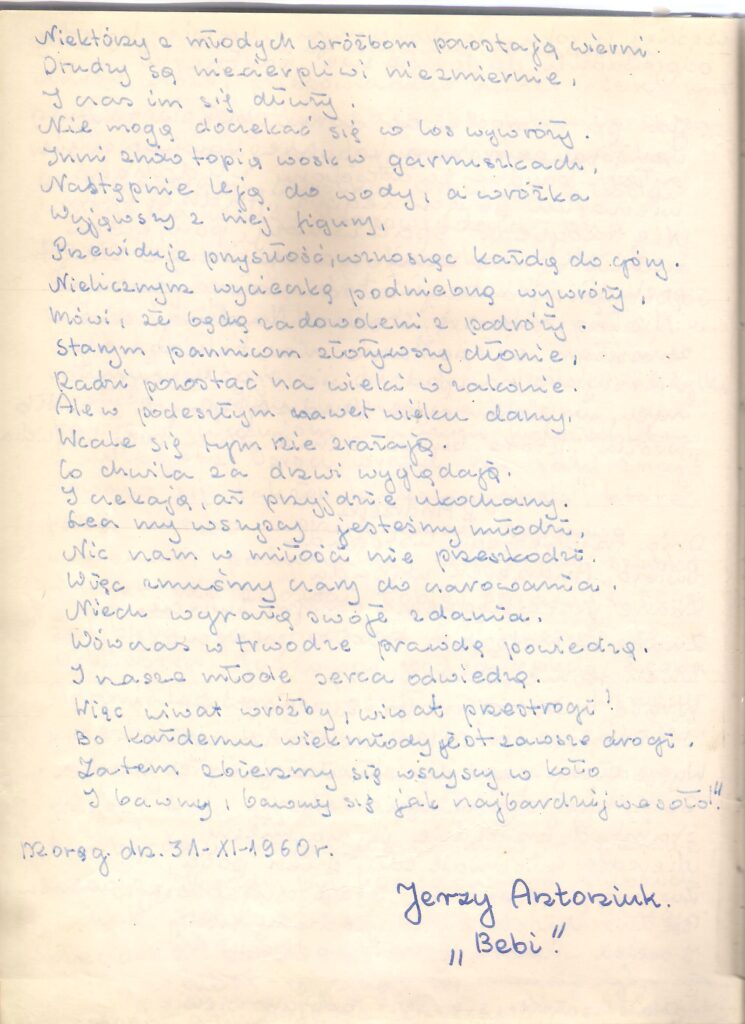 Niektórzy z młodych wróżbom pozostają wierni.
Drudzy są niecierpliwi niezmiernie,
I czas im się dłuży.
Nie mogą doczekać się w los wywróży.
Inni znów topią wosk w garnuszkach,
Następnie leją do wody, a wróżka
Wyjąwszy z niej figury,
Przewiduje przyszłość, wznosząc każdą do góry.
Nielicznym wycieczkę podniebną wywróży,
Mówi, że będą zadowoleni z podróży.
Starym pannicom złożywszy dłonie,
Radzi pozostać na wieki w zakonie.
Ale w podeszłym nawet wieku damy,
Wcale się tym nie zrażają.
Co chwila za drzwi wyglądają.
I czekają, aż przyjdzie ukochany.
Lecz my wszyscy jesteśmy młodzi,
Nic nam w miłości nie przeszkodzi.
Więc zmuśmy czary do czarowania.
Niech wyrażą swoje zdania.
Wówczas w trwodze prawdę powiedzą.
I nasze młode serca odwiedzą.
Więc wiwat wróżby, wiwat przestrogi!
Bo każdemu wiek młody jest zawsze drogi.
Zatem zbierzmy się wszyscy w koło
I bawmy, bawmy się jak najbardziej wesoło!"
dn. 31-XI-1960r.
Jerzy Antoniuk.
„Bebi".